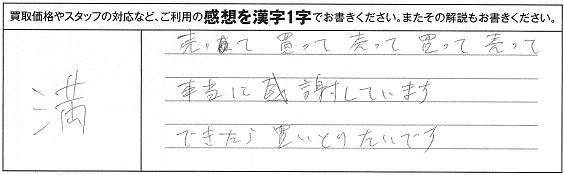 買取価格やスタッフの対応など、ご利用の感想を漢字1字でお書きください。またその解説もお書きください。
満
売って 買って 売って 買って 売って
本当に感謝しています
できたら買いとりたいです